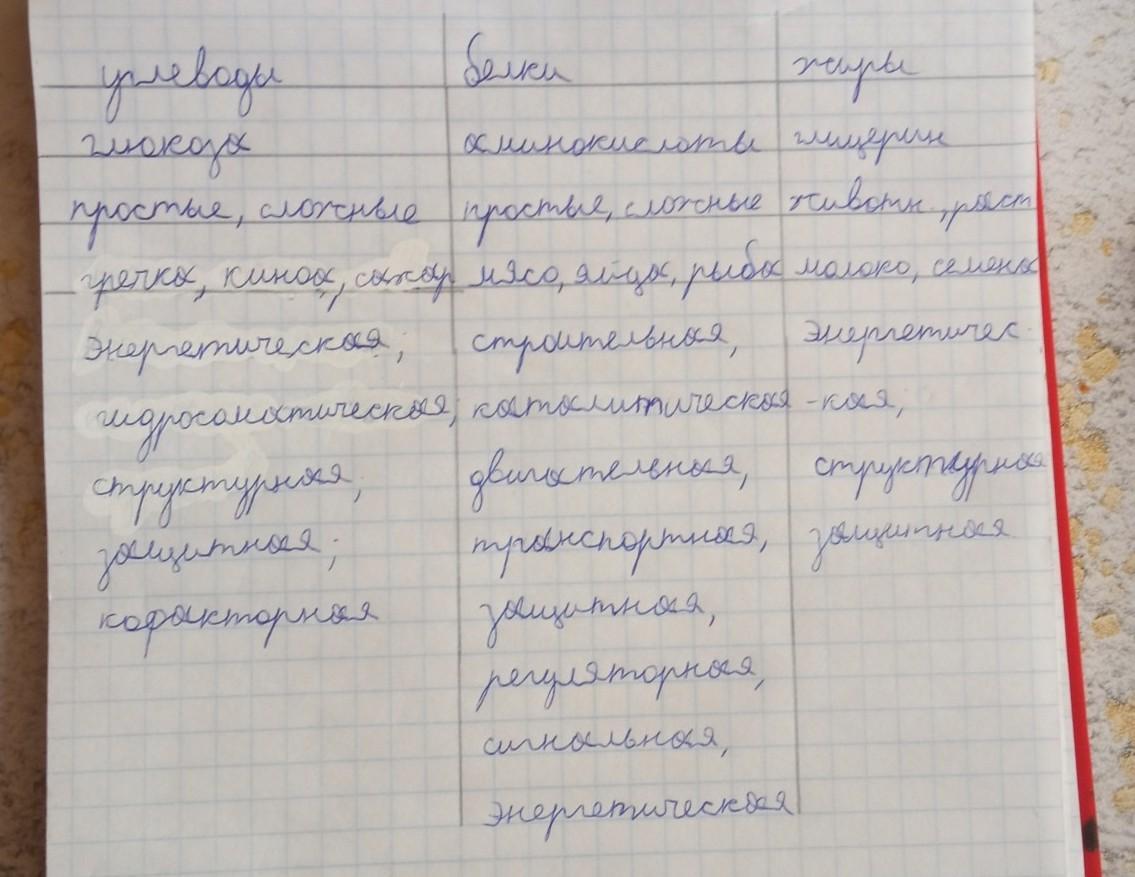 углеводы белки жиры
глюкоза аминокислоты глицерин
простые, сложные простые, сложные животн., раст
гречка, киноа, сахар мясо, яйца, рыба молоко, семена
энергетическая; строительная, энергетичес-
гидросоматическая; каталитическая -кая,
структурная, двигательная, структурная
защитная; транспортная, защитная
кофакторная защитная,
регуляторная,
сигнальная,
энергетическая